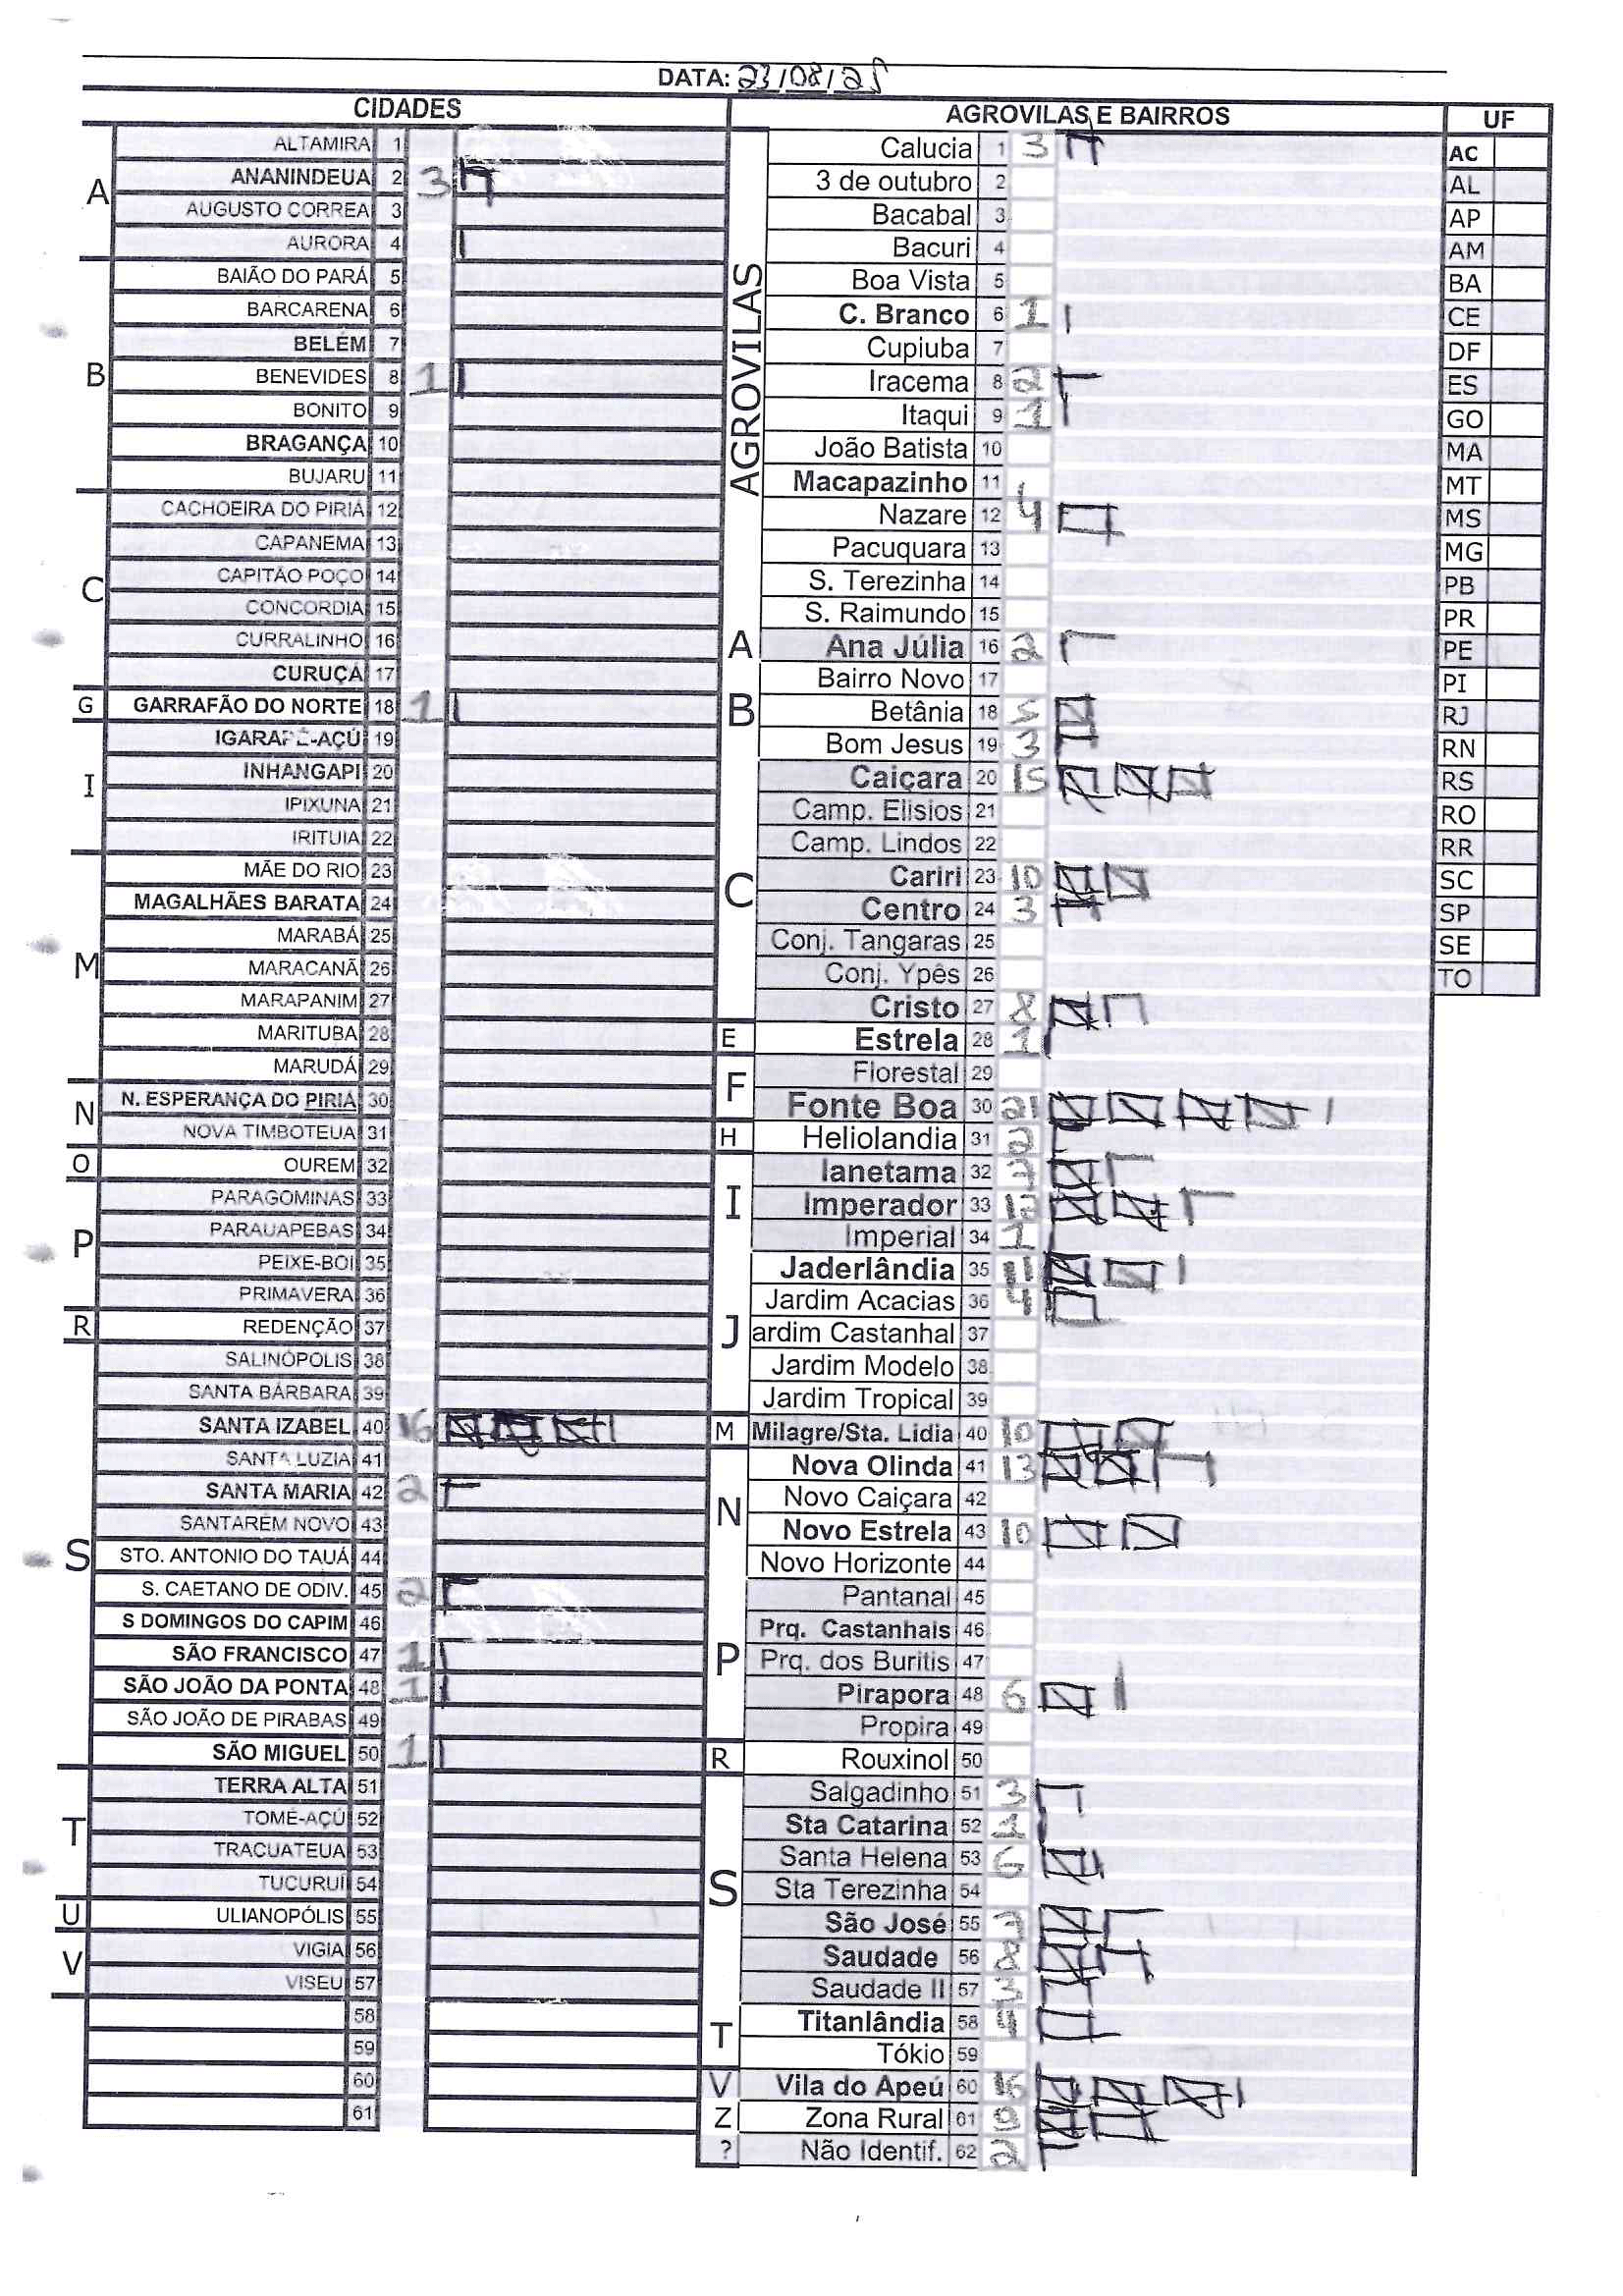 DATA: 23/08/25
CIDADES
AGROVILAS E BAIRROS
UF
A
ALTAMIRA 1
ANANINDEUA 2 3
AUGUSTO CORREA 3
AURORA 4
B
BAIÃO DO PARÁ 5
BARCARENA 6
BELÉM 7
BENEVIDES 8 1
BONITO 9
BRAGANÇA 10
BUJARU 11
C
CACHOEIRA DO PIRIÁ 12
CAPANEMA 13
CAPITÃO POÇO 14
CONCORDIA 15
CURRALINHO 16
CURUÇÁ 17
G
GARRAFÃO DO NORTE 18 1
I
IGARAPÉ-AÇÚ 19
INHANGAPI 20
IPIXUNA 21
IRITUIA 22
M
MÃE DO RIO 23
MAGALHÃES BARATA 24
MARABÁ 25
MARACANÃ 26
MARAPANIM 27
MARITUBA 28
MARUDÁ 29
N
N. ESPERANÇA DO PIRIÁ 30
NOVA TIMBOTEUA 31
O
OUREM 32
P
PARAGOMINAS 33
PARAUAPEBAS 34
PEIXE-BOI 35
PRIMAVERA 36
R
REDENÇÃO 37
S
SALINÓPOLIS 38
SANTA BÁRBARA 39
SANTA IZABEL 40 16
SANTA LUZIA 41
SANTA MARIA 42 2
SANTARÉM NOVO 43
STO. ANTONIO DO TAUÁ 44
S. CAETANO DE ODIV. 45 2
S DOMINGOS DO CAPIM 46
SÃO FRANCISCO 47 1
SÃO JOÃO DA PONTA 48 1
SÃO JOÃO DE PIRABAS 49
SÃO MIGUEL 50 1
T
TERRA ALTA 51
TOMÉ-AÇÚ 52
TRACUATEUA 53
TUCURUI 54
U
ULIANOPÓLIS 55
V
VIGIA 56
VISEU 57
58
59
60
61
AGROVILAS
Calucia 1 3
3 de outubro 2
Bacabal 3
Bacuri 4
Boa Vista 5
C. Branco 6 1
Cupiuba 7
Iracema 8 2
Itaqui 9 1
João Batista 10
Macapazinho 11
Nazare 12 4
Pacuquara 13
S. Terezinha 14
S. Raimundo 15
A
Ana Júlia 16 2
B
Bairro Novo 17
Betânia 18 5
Bom Jesus 19 3
C
Caiçara 20 15
Camp. Elisios 21
Camp. Lindos 22
Cariri 23 10
Centro 24 3
Conj. Tangaras 25
Conj. Ypês 26
Cristo 27 8
E
Estrela 28 1
F
Florestal 29
Fonte Boa 30 21
H
Heliolandia 31 2
I
Ianetama 32 7
Imperador 33 12
Imperial 34 1
J
Jaderlândia 35 11
Jardim Acacias 36 4
ardim Castanhal 37
Jardim Modelo 38
Jardim Tropical 39
M
Milagre/Sta. Lidia 40 10
N
Nova Olinda 41 13
Novo Caiçara 42
Novo Estrela 43 10
Novo Horizonte 44
P
Pantanal 45
Prq. Castanhais 46
Prq. dos Buritis 47
Pirapora 48 6
Propira 49
R
Rouxinol 50
S
Salgadinho 51 3
Sta Catarina 52 1
Santa Helena 53 6
Sta Terezinha 54
São José 55 7
Saudade 56 8
Saudade II 57 3
T
Titanlândia 58 4
Tókio 59
V
Vila do Apeú 60 16
Z
Zona Rural 61 9
?
Não Identif. 62 2
AC
AL
AP
AM
BA
CE
DF
ES
GO
MA
MT
MS
MG
PB
PR
PE
PI
RJ
RN
RS
RO
RR
SC
SP
SE
TO